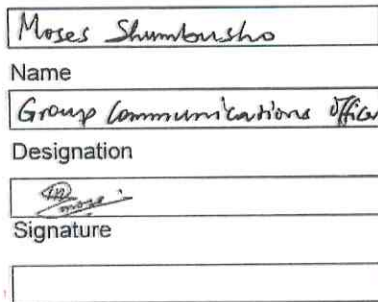 Moses Shumbusho
Name
Group Communications Officer
Designation
Signature